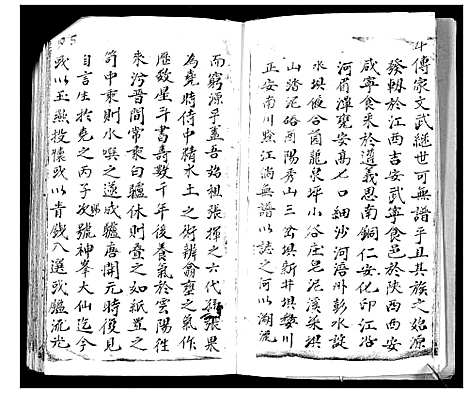 斗傳家文武繼世可無譜乎且其族之始源
發軔於江西吉安武寧食邑於陝西西安
咸寧食采於遵義思南銅仁安化印江沿
河眉潭甕安高七口細沙河涪州彭水淀
水垻後合茵龍泉坪小谷庄皂泥溪茶垻
山踏泥硌酉陽秀山三岔垻新井垻婺川
正安南川黔江尚無譜以誌之河以湖流
而窮源乎蓋吾始祖張揮之六代孫張果
為堯時侍中精水土之術辨俞壅之氣作
歷數星斗書壽數千年後養氣於雲陽徃
來汾晋間常乘白驢休則疊之如紙置之
笥中乘則水噀之遂成驢唐開元時復見
自言生於堯之丙子歲號神峯大仙迄今
或以玉燕投懷或以青錢入選或鑑流光